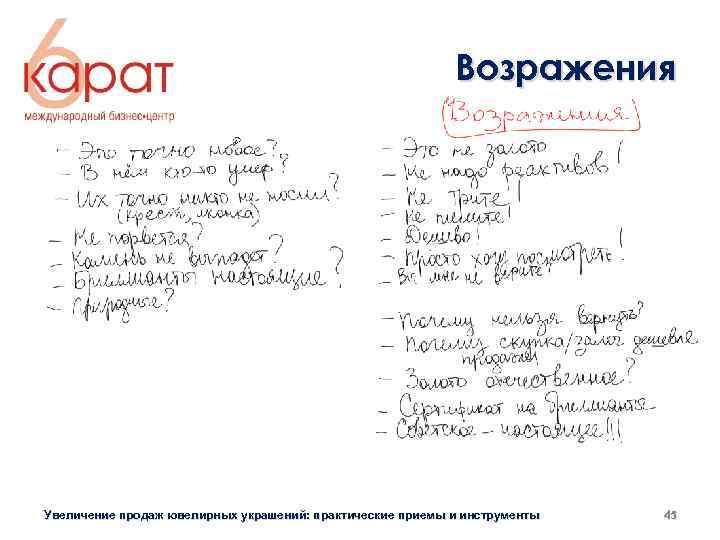 6 карат
международный бизнес•центр
Возражения
Возражения
- Это точно новое?
- В нём кто-то умер?
- Их точно никто не носил?
(крест, иконка)
- Не порвется?
- Камень не выпадет?
- Бриллианты настоящие?
- Природные?
- Это не золото!
- Не надо реактивов!
- Не трите!
- Не пилите!
- Дешево!
- Просто хочу посмотреть!
- Вы мне не верите?
- Почему нельзя вернуть?
- Почему скупка/залог дешевле
продажи
- Золото отечественное?
- Сертификат на бриллианты
- Советское - настоящее!!!
Увеличение продаж ювелирных украшений: практические приемы и инструменты
45